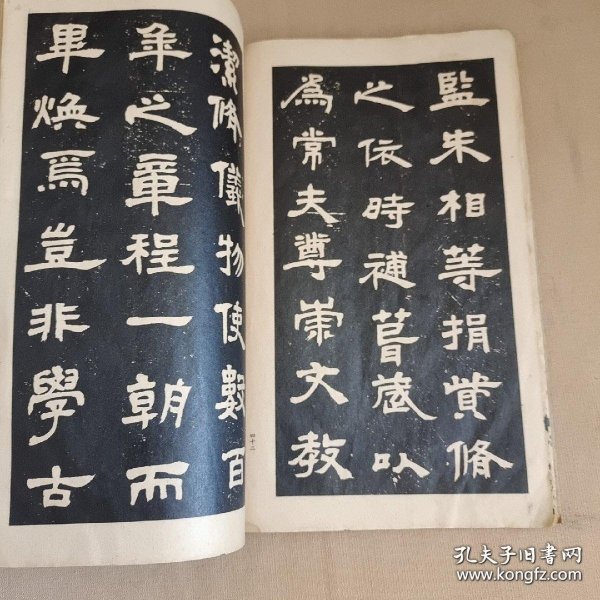 監朱相等捐貲脩
之依時補葺歲以
爲常夫尊崇文教
潔脩儀物使數百
年之章程一朝而
畢煥焉豈非學古
四十二
孔夫子旧书网
www.kongfz.com